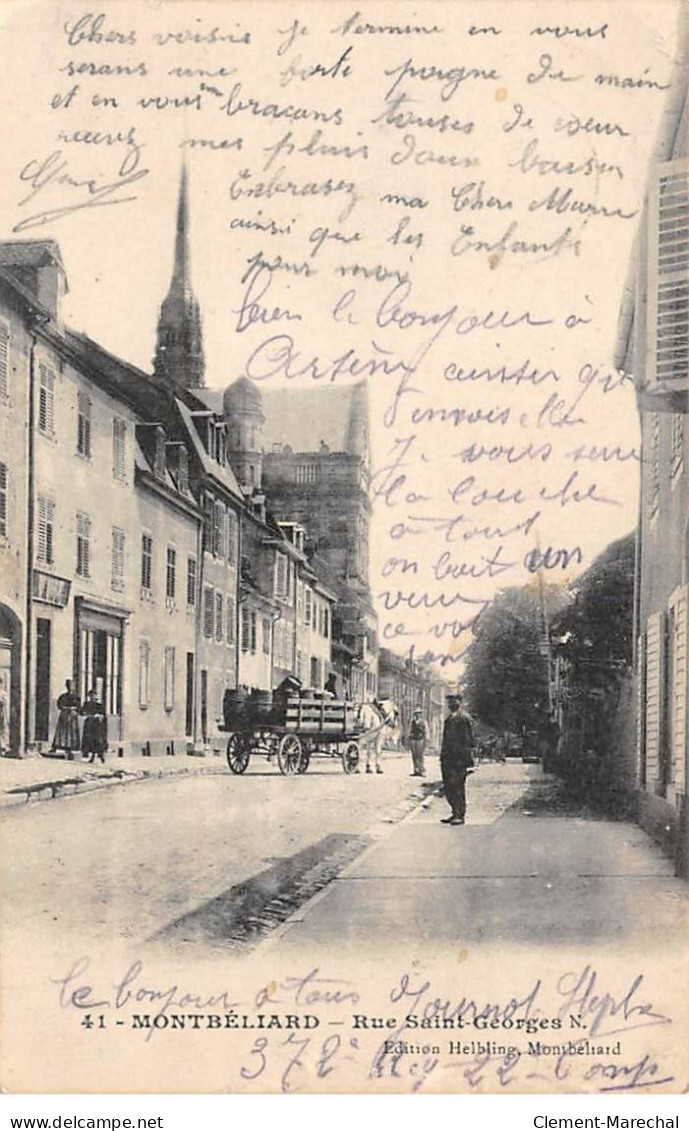 Chers voisis Je termine en vous
serans une forte poigne de main
et en vous m'bracans toutes de cœur
recevz mes plus doux baiser
Enbrasez ma Cher Marie
ainsi que les Enfants
pour moi
bien le bonjour à
Arsène ainsiter qu'
d'envois elle
J vous serre
la louche
à tout
on boit un
verre
ce
le bonjour a tous de Journot Steph
41 - MONTBÉLIARD - Rue Saint-Georges N.
Edition Helbling, Montbéliard
372e 22 Comp
Clement-Marechal